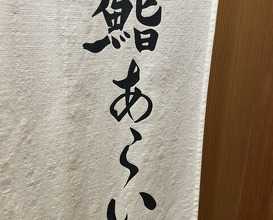 鮨あらい